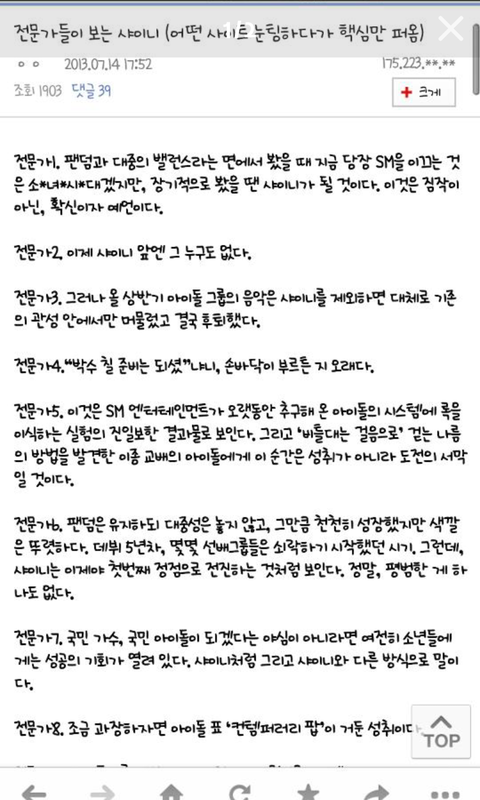 전문가들이 보는 샤이니 (어떤 사이트 눈팅하다가 핵심만 퍼옴)
ㅇㅇ 2013.07.14 17:52 175.223.**.**
조회 1903 댓글 39 크게
전문가1. 팬덤과 대중의 밸런스라는 면에서 봤을 때 지금 당장 SM을 이끄는 것
은 소*녀*시*대겠지만, 장기적으로 봤을 땐 샤이니가 될 것이다. 이것은 짐작이
아닌, 확신이자 예언이다.
전문가2. 이제 샤이니 앞엔 그 누구도 없다.
전문가3. 그러나 올 상반기 아이돌 그룹의 음악은 샤이니를 제외하면 대체로 기존
의 관성 안에서만 머물렀고 결국 후퇴했다.
전문가4.“박수 칠 준비는 되셨”냐니, 손바닥이 부르튼 지 오래다.
전문가5. 이것은 SM 엔터테인먼트가 오랫동안 추구해 온 아이돌의 시스템에 록을
이식하는 실험의 진일보한 결과물로 보인다. 그리고 ‘비틀대는 걸음으로’ 걷는 나름
의 방법을 발견한 이종 교배의 아이돌에게 이 순간은 성취가 아니라 도전의 서막
일 것이다.
전문가6. 팬덤은 유지하되 대중성은 놓지 않고, 그만큼 천천히 성장했지만 색깔
은 뚜렷하다. 데뷔 5년차, 몇몇 선배그룹들은 쇠락하기 시작했던 시기. 그런데,
샤이니는 이제야 첫번째 정점으로 전진하는 것처럼 보인다. 정말, 평범한 게 하
나도 없다.
전문가7. 국민 가수, 국민 아이돌이 되겠다는 야심이 아니라면 여전히 소년들에
게는 성공의 기회가 열려 있다. 샤이니처럼 그리고 샤이니와 다른 방식으로 말이
다.
전문가8. 조금 과장하자면 아이돌 표 ‘컨템퍼러리 팝’이 거둔 성취이다.
TOP